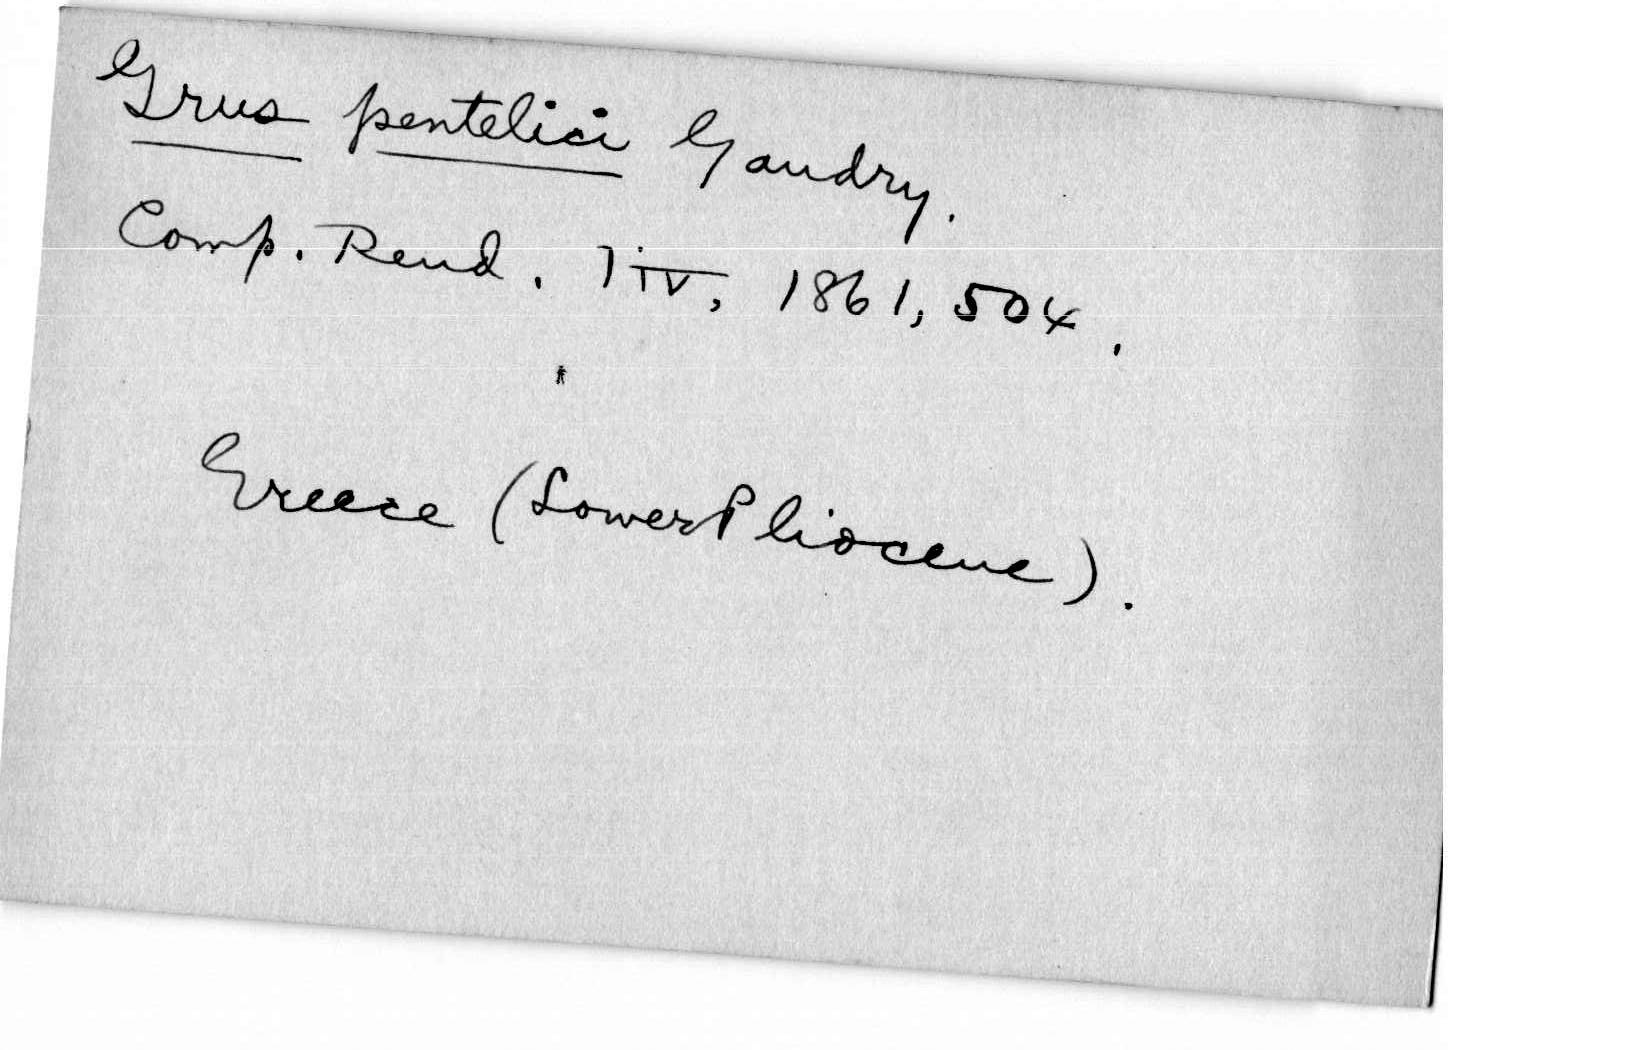 Grus pentelici Gaudry.
Comp. Rend. liv, 1861, 504.
Greece (Lower Pliocene).